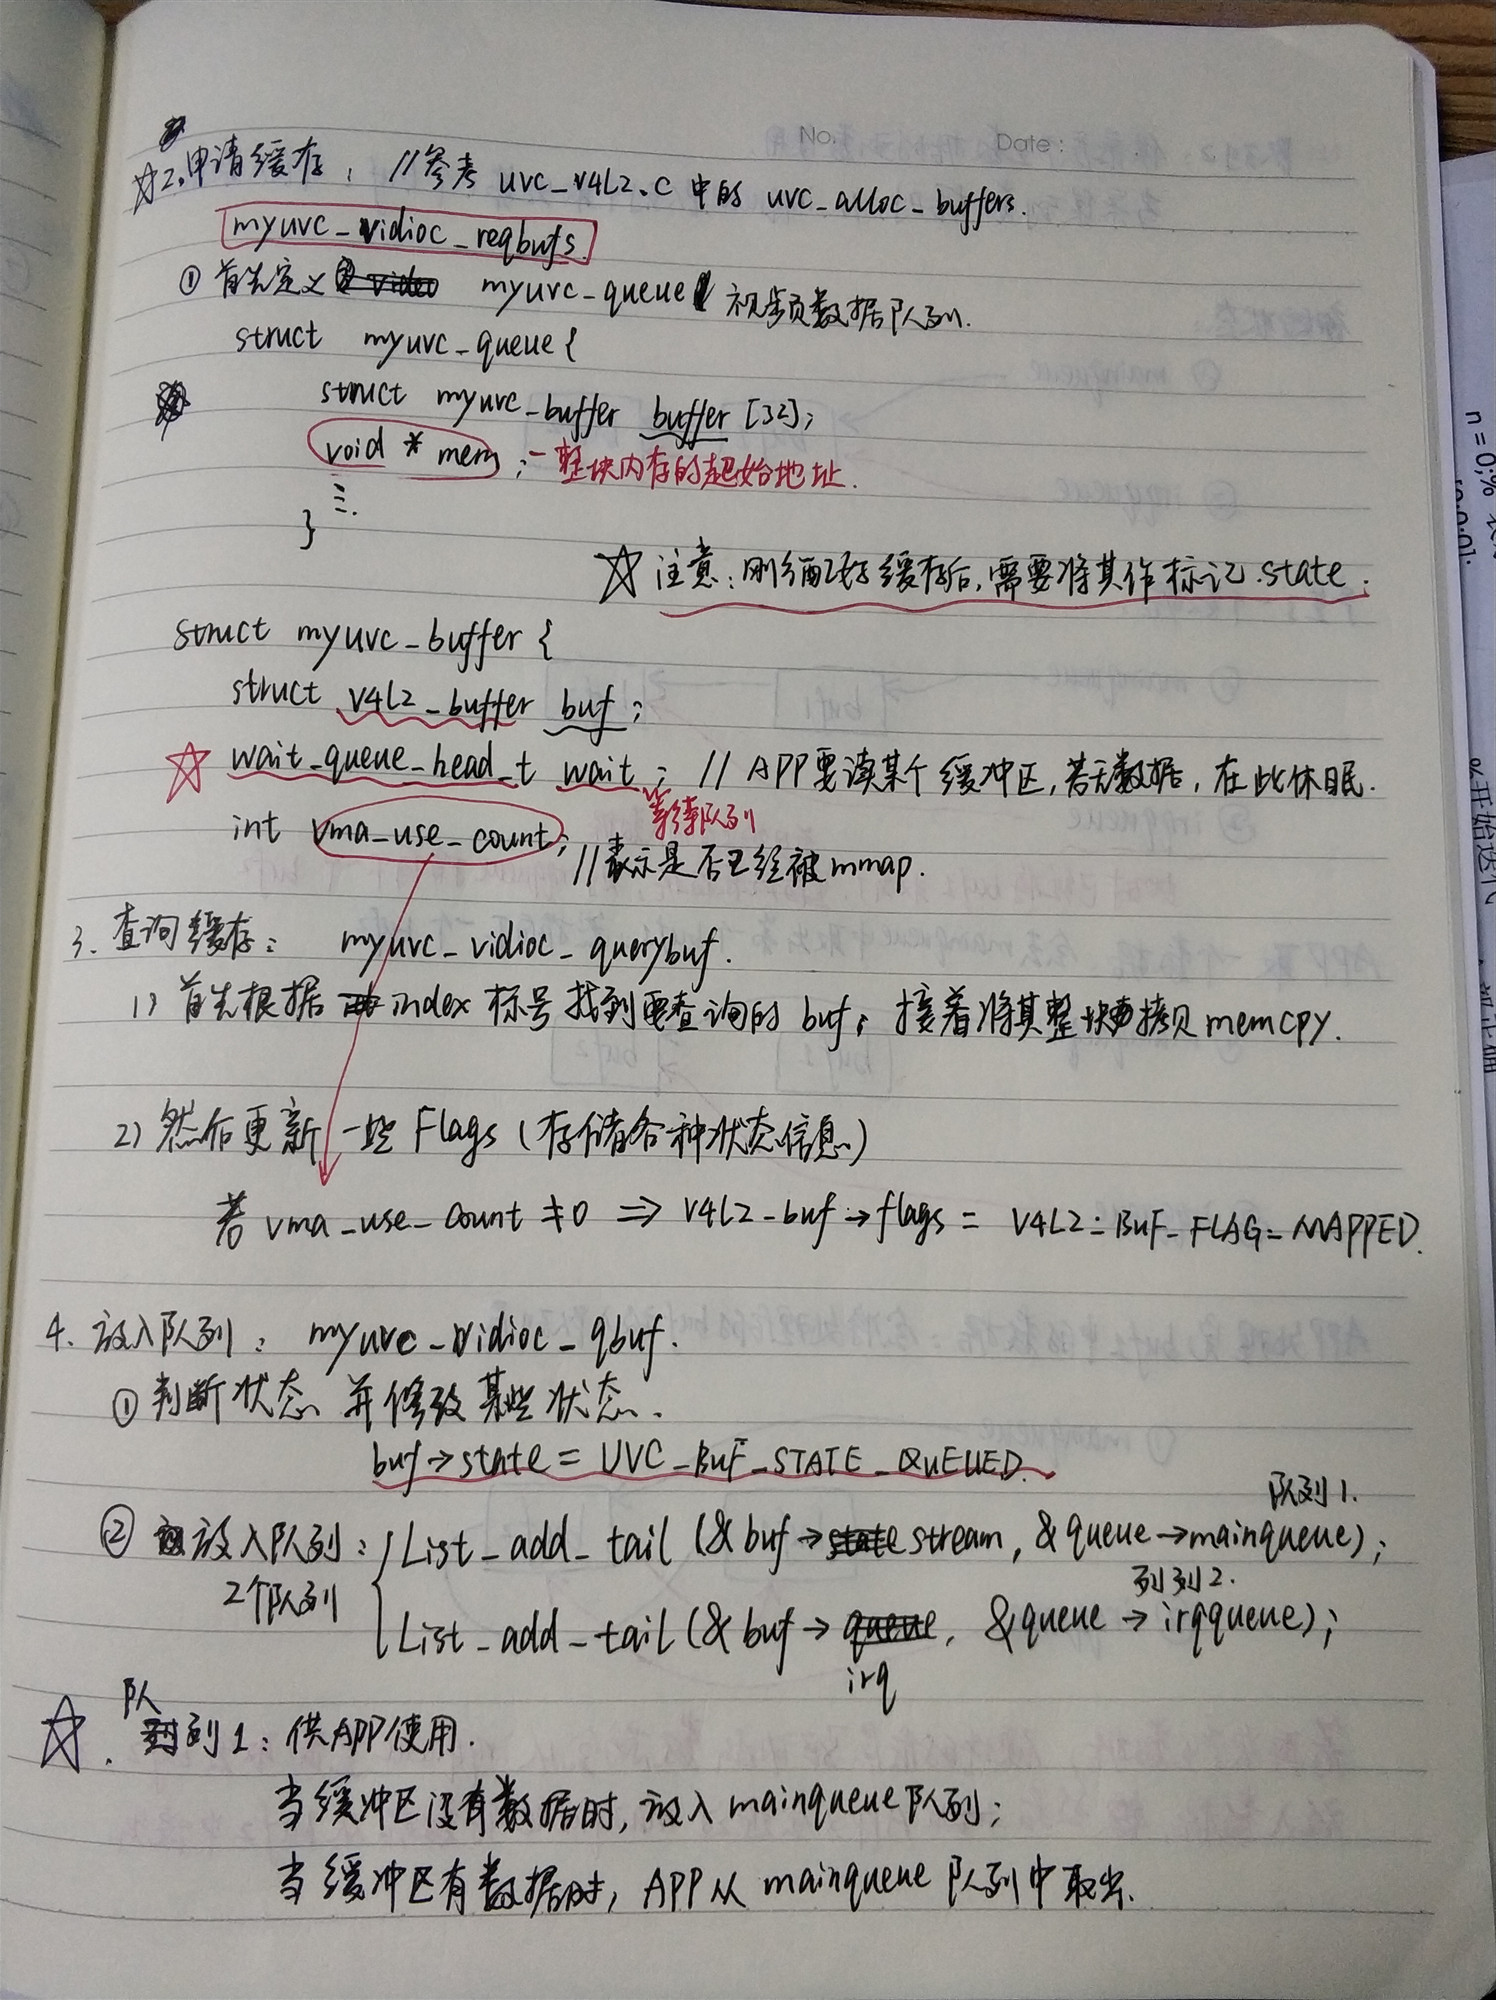 No.    Date:
☆2.申请缓存, //参考 uvc_v4l2.c 中的 uvc_alloc_buffers.
myuvc_vidioc_reqbufs.
① 首先定义 myuvc_queue 视频数据队列.
struct myuvc_queue {
struct myuvc_buffer buffer [32];
void * mem; 一整块内存的起始地址.
}
☆ 注意:刚分配好缓存后,需要将其作标记.state.
struct myuvc_buffer {
struct v4l2_buffer buf;
☆ wait_queue_head_t wait; // APP要读某个缓冲区,若无数据,在此休眠.
等待队列
int vma_use_count; //表示是否已经被mmap.
3. 查询缓存: myuvc_vidioc_querybuf.
1) 首先根据 index 标号找到要查询的 buf; 接着将其整块拷贝 memcpy.
2) 然后更新一些 Flags (存储各种状态信息)
若 vma_use_count ≠0 => V4L2_buf→flags = V4L2_BUF_FLAG_MAPPED.
4. 放入队列: myuvc_vidioc_qbuf.
① 判断状态 并修改某些状态.
buf→state = UVC_BUF_STATE_QUEUED.
队列1.
② 放入队列: List_add_tail (&buf→stream, &queue→mainqueue);
2个队列
列列2.
List_add_tail (&buf→irq, &queue→irqqueue);
☆. 队列1: 供APP使用.
当缓冲区没有数据时,放入mainqueue队列;
当缓冲区有数据时, APP从 mainqueue 队列中取出.
n = 0;%
%开始迭代